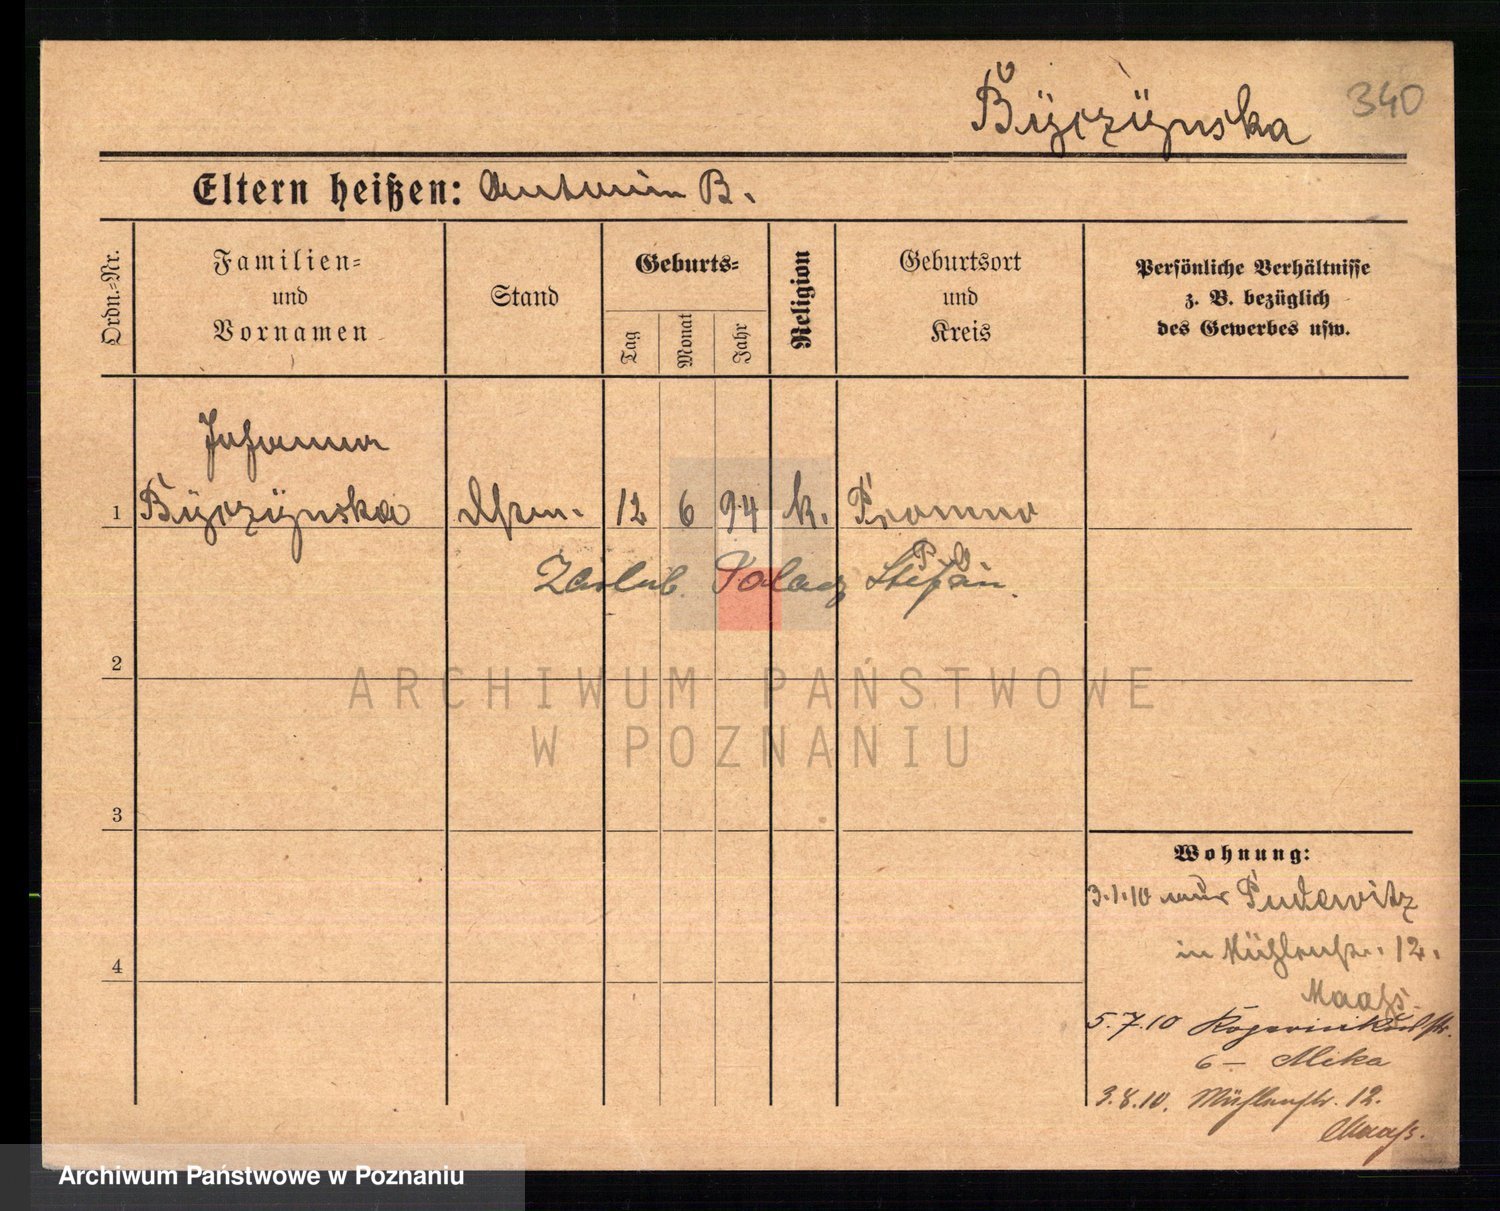 Byczynska 340
Eltern heißen: Antonin B.
Ordn.-Nr.
Familien-
und
Vornamen
Stand
Geburts-
Tag
Monat
Jahr
Religion
Geburtsort
und
Kreis
Persönliche Verhältnisse
z. B. bezüglich
des Gewerbes usw.
Johanna
1 Byczynska 12 6 94 k. Promno
Zaślub. Stefan.
2
3
4
Wohnung:
3.1.10 aus Pudewitz
in Mühlenstr. 12.
Maaß.
5.7.10
6 – Mika
3.8.10. Mühlenstr. 12.
Maaß.
ARCHIWUM PAŃSTWOWE
W POZNANIU
Archiwum Państwowe w Poznaniu